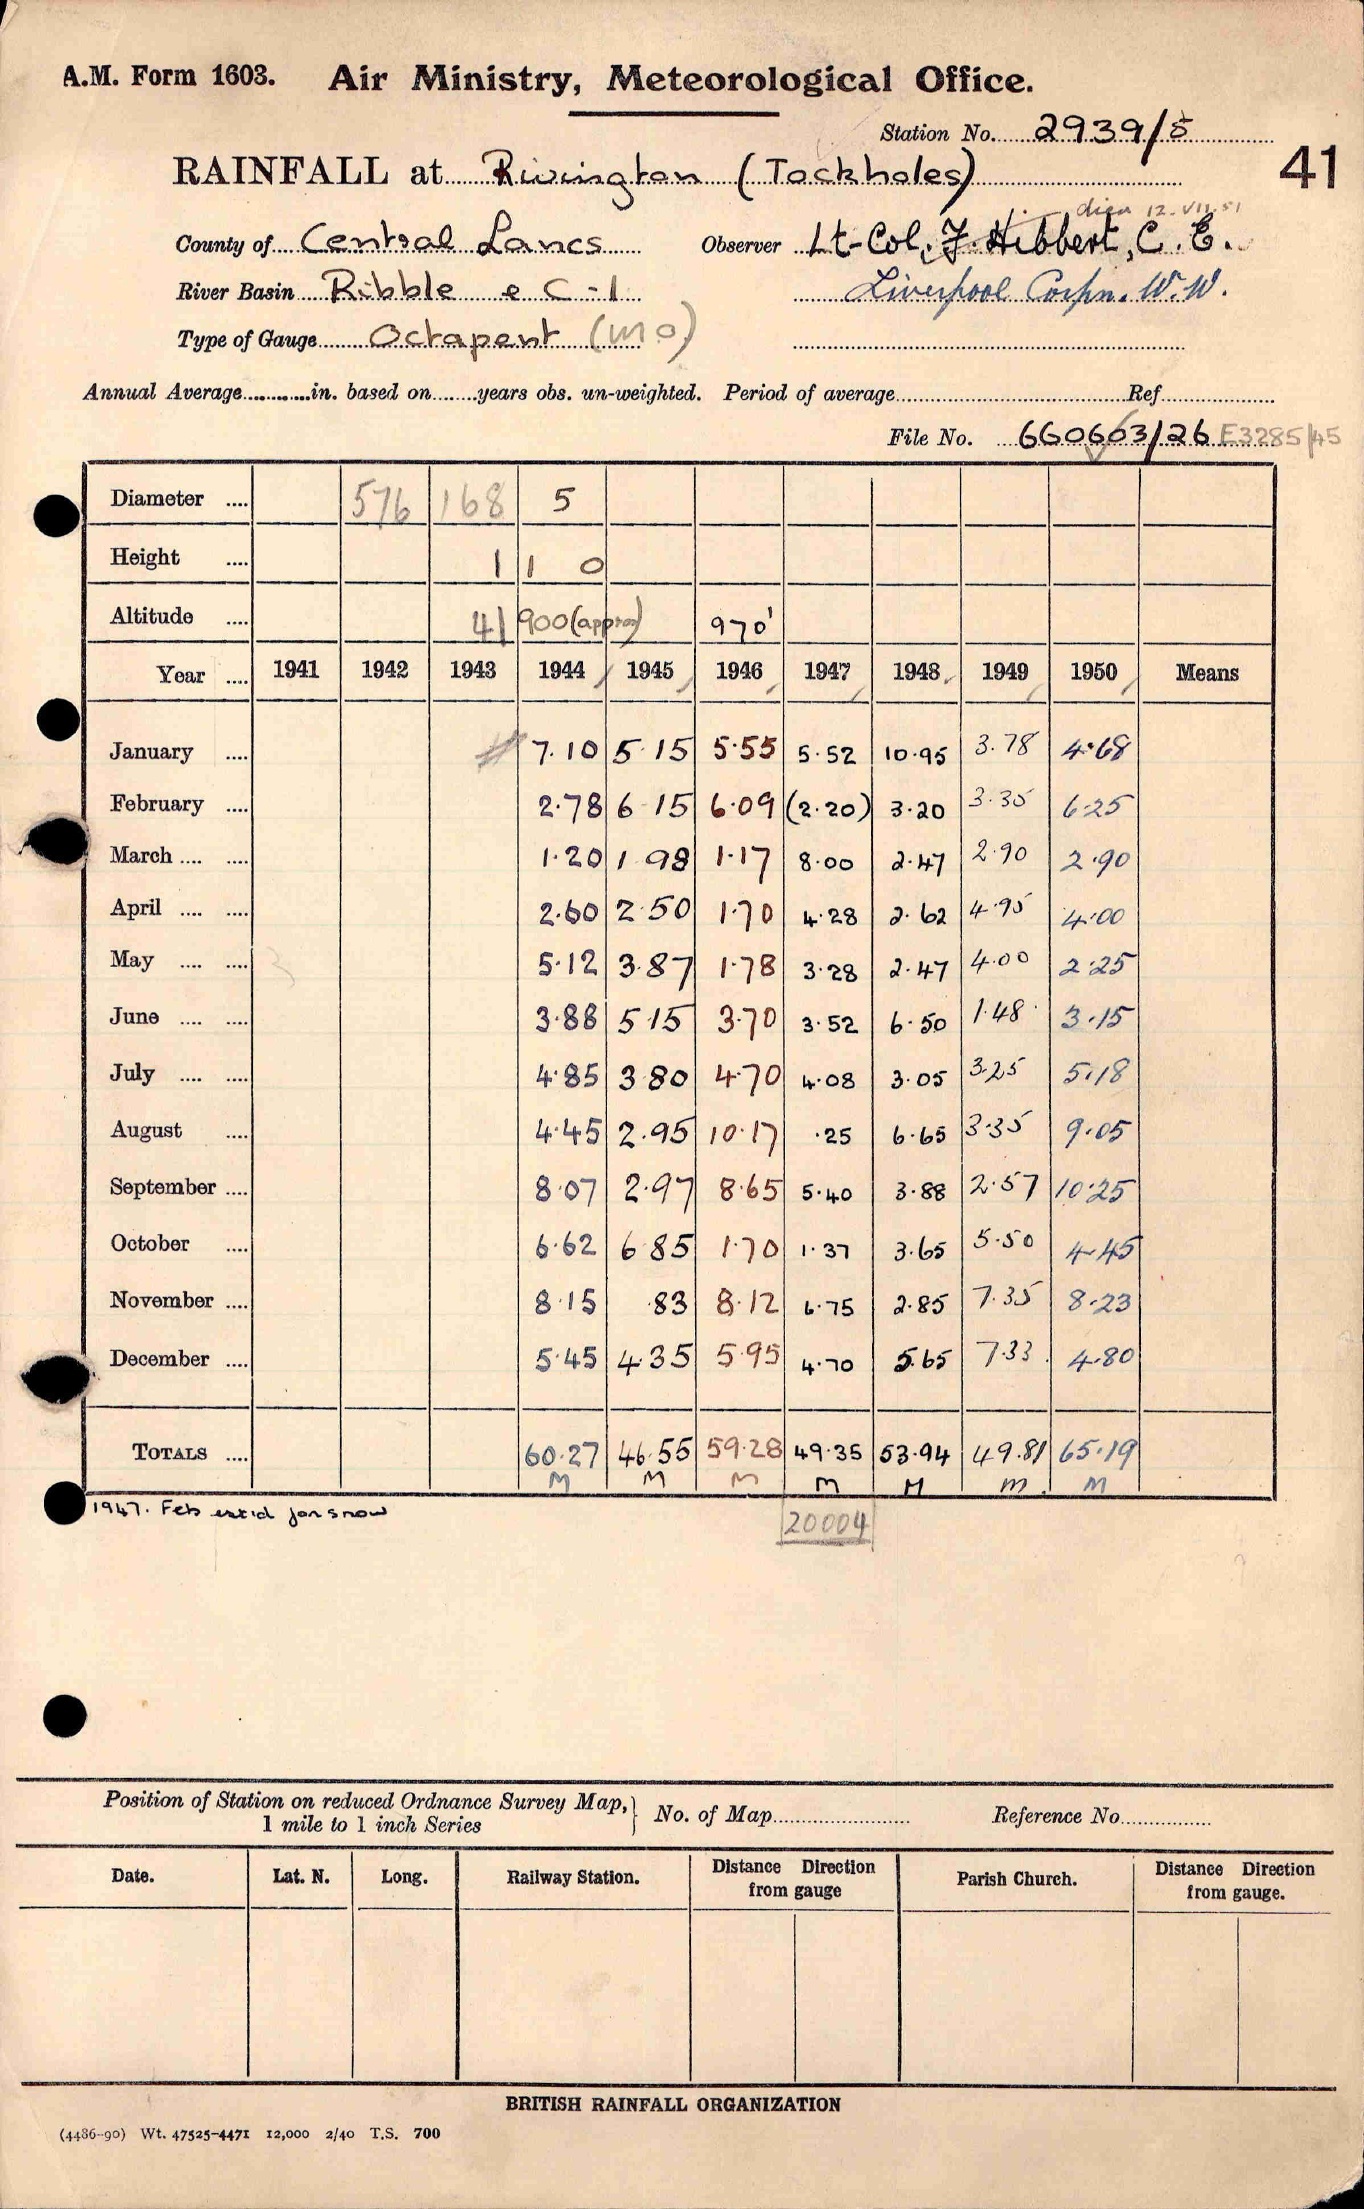 A.M. Form 1603. Air Ministry, Meteorological Office.
Station No. 2939/5
41
RAINFALL at Rivington (Tockholes)
died 12.VII.51
County of Central Lancs Observer Lt-Col. F. Hibbert, C.E.
River Basin Ribble e C-1 Liverpool Corpn. W.W.
Type of Gauge Octapent (MO)
Annual Average in. based on years obs. un-weighted. Period of average Ref
File No. 660603/26 E3285/45
Diameter .... 576 168 5
Height .... 1 1 0
Altitude .... 41 900 (approx) 970'
Year .... 1941 1942 1943 1944 1945 1946 1947 1948 1949 1950 Means
January .... 7.10 5.15 5.55 5.52 10.95 3.78 4.68
February .... 2.78 6.15 6.09 (2.20) 3.20 3.35 6.25
March .... .... 1.20 1.98 1.17 8.00 2.47 2.90 2.90
April .... .... 2.60 2.50 1.70 4.28 2.62 4.95 4.00
May .... .... 5.12 3.87 1.78 3.28 2.47 4.00 2.25
June .... .... 3.88 5.15 3.70 3.52 6.50 1.48 3.15
July .... .... 4.85 3.80 4.70 4.08 3.05 3.25 5.18
August .... 4.45 2.95 10.17 .25 6.65 3.35 9.05
September .... 8.07 2.97 8.65 5.40 3.88 2.57 10.25
October .... 6.62 6.85 1.70 1.37 3.65 5.50 4.45
November .... 8.15 .83 8.12 6.75 2.85 7.35 8.23
December .... 5.45 4.35 5.95 4.70 5.65 7.33 4.80
TOTALS .... 60.27 46.55 59.28 49.35 53.94 49.81 65.19
M M M M M M M
1947. Feb est'd for snow
20004
Position of Station on reduced Ordnance Survey Map,} No. of Map Reference No.
1 mile to 1 inch Series
Date. Lat. N. Long. Railway Station. Distance Direction from gauge Parish Church. Distance Direction from gauge.
BRITISH RAINFALL ORGANIZATION
(4486-90) Wt. 47525-4471 12,000 2/40 T.S. 700